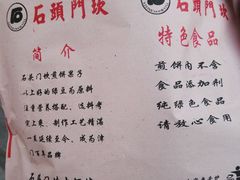 石頭門坎
简介
石头门坎煎饼果子
以上好的绿豆为原
注重营养搭配、选料考
究上乘、制作工艺精湛
一直延续至今、成为津
门百年品牌
石頭門坎
特色食品
煎饼内不含
食品添加剂
纯绿色食品
请放心食用